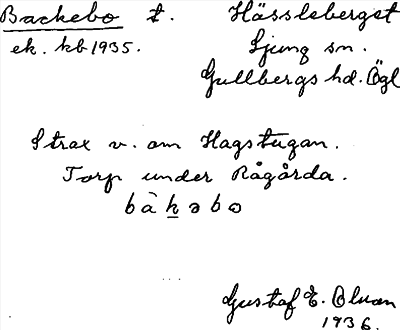 Backebo t. Hässleberget
ek. kb 1935. Ljung sn.
Gullbergs hd. Ögl
Strax v. om Hagstugan.
Torp under Rågårda.
bàkəbo
Gustaf E.
1936.